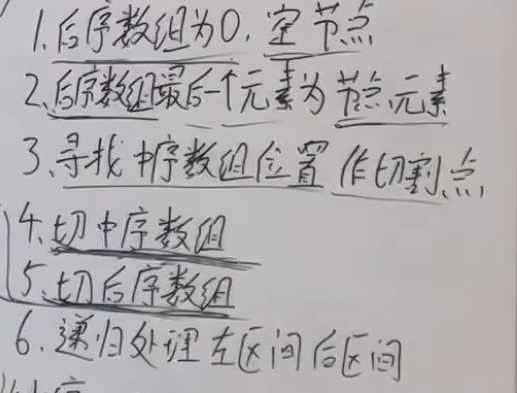 1.后序数组为0,空节点
2、后序数组最后一个元素为节点元素
3、寻找中序数组位置作切割点
4、切中序数组
5、切后序数组
6、递归处理左区间后区间